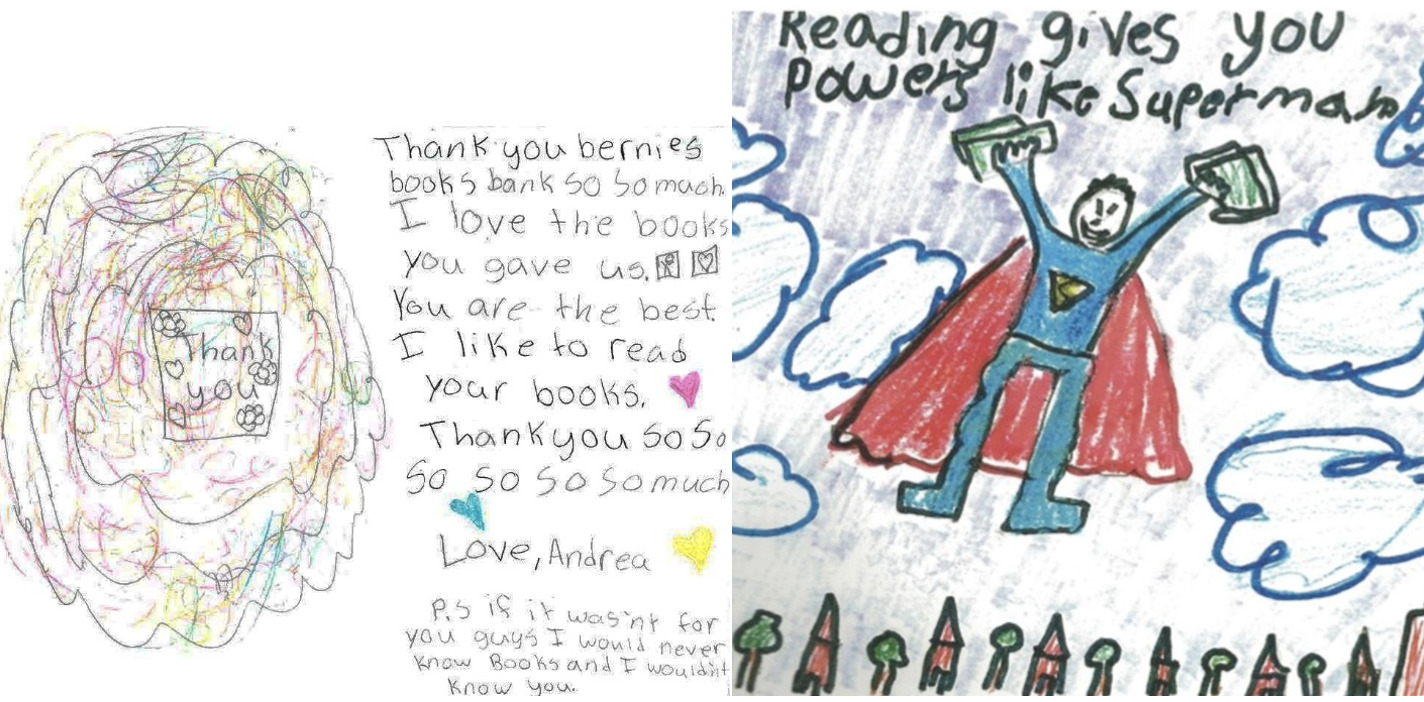 Thank
you
Thank you bernies
books bank so so much.
I love the books
you gave us.
You are the best.
I like to read
your books.
Thank you so so
so so so so much
Love, Andrea
P.S if it was'nt for
you guys I would never
know Books and I would'nt
know you.
Reading gives you
powers like Superman